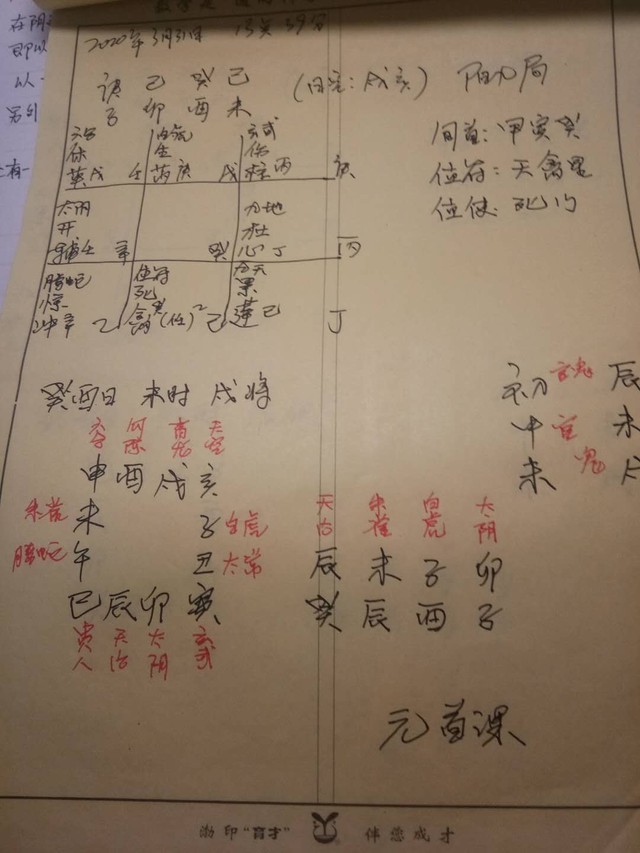 2020年3月31日 13点39分
庚 己 癸 己 (日空:戌亥) 阳九局
子 卯 酉 未
旬首:甲寅癸
位符:天禽星
位使:死门
六合 白虎 玄武
休 生 伤
英戊 壬 芮庚 戊 柱丙 庚
太阴 九地
开 杜
辅壬 辛 癸 心丁 丙
腾蛇 位符 九天
惊 死 景
冲辛 乙 禽癸(任)² 己 蓬己 丁
癸酉日 未时 戌将
初 辰
中 官 未
末 鬼 戌
六合 勾陈 青龙 天空
申 酉 戌 亥
朱雀 未 子 白虎
腾蛇 午 丑 太常
巳 辰 卯 寅
贵人 天后 太阴 玄武
天后 朱雀 白虎 太阴
辰 未 子 卯
癸 辰 酉 子
元首课
渤印“育才” 伴您成才